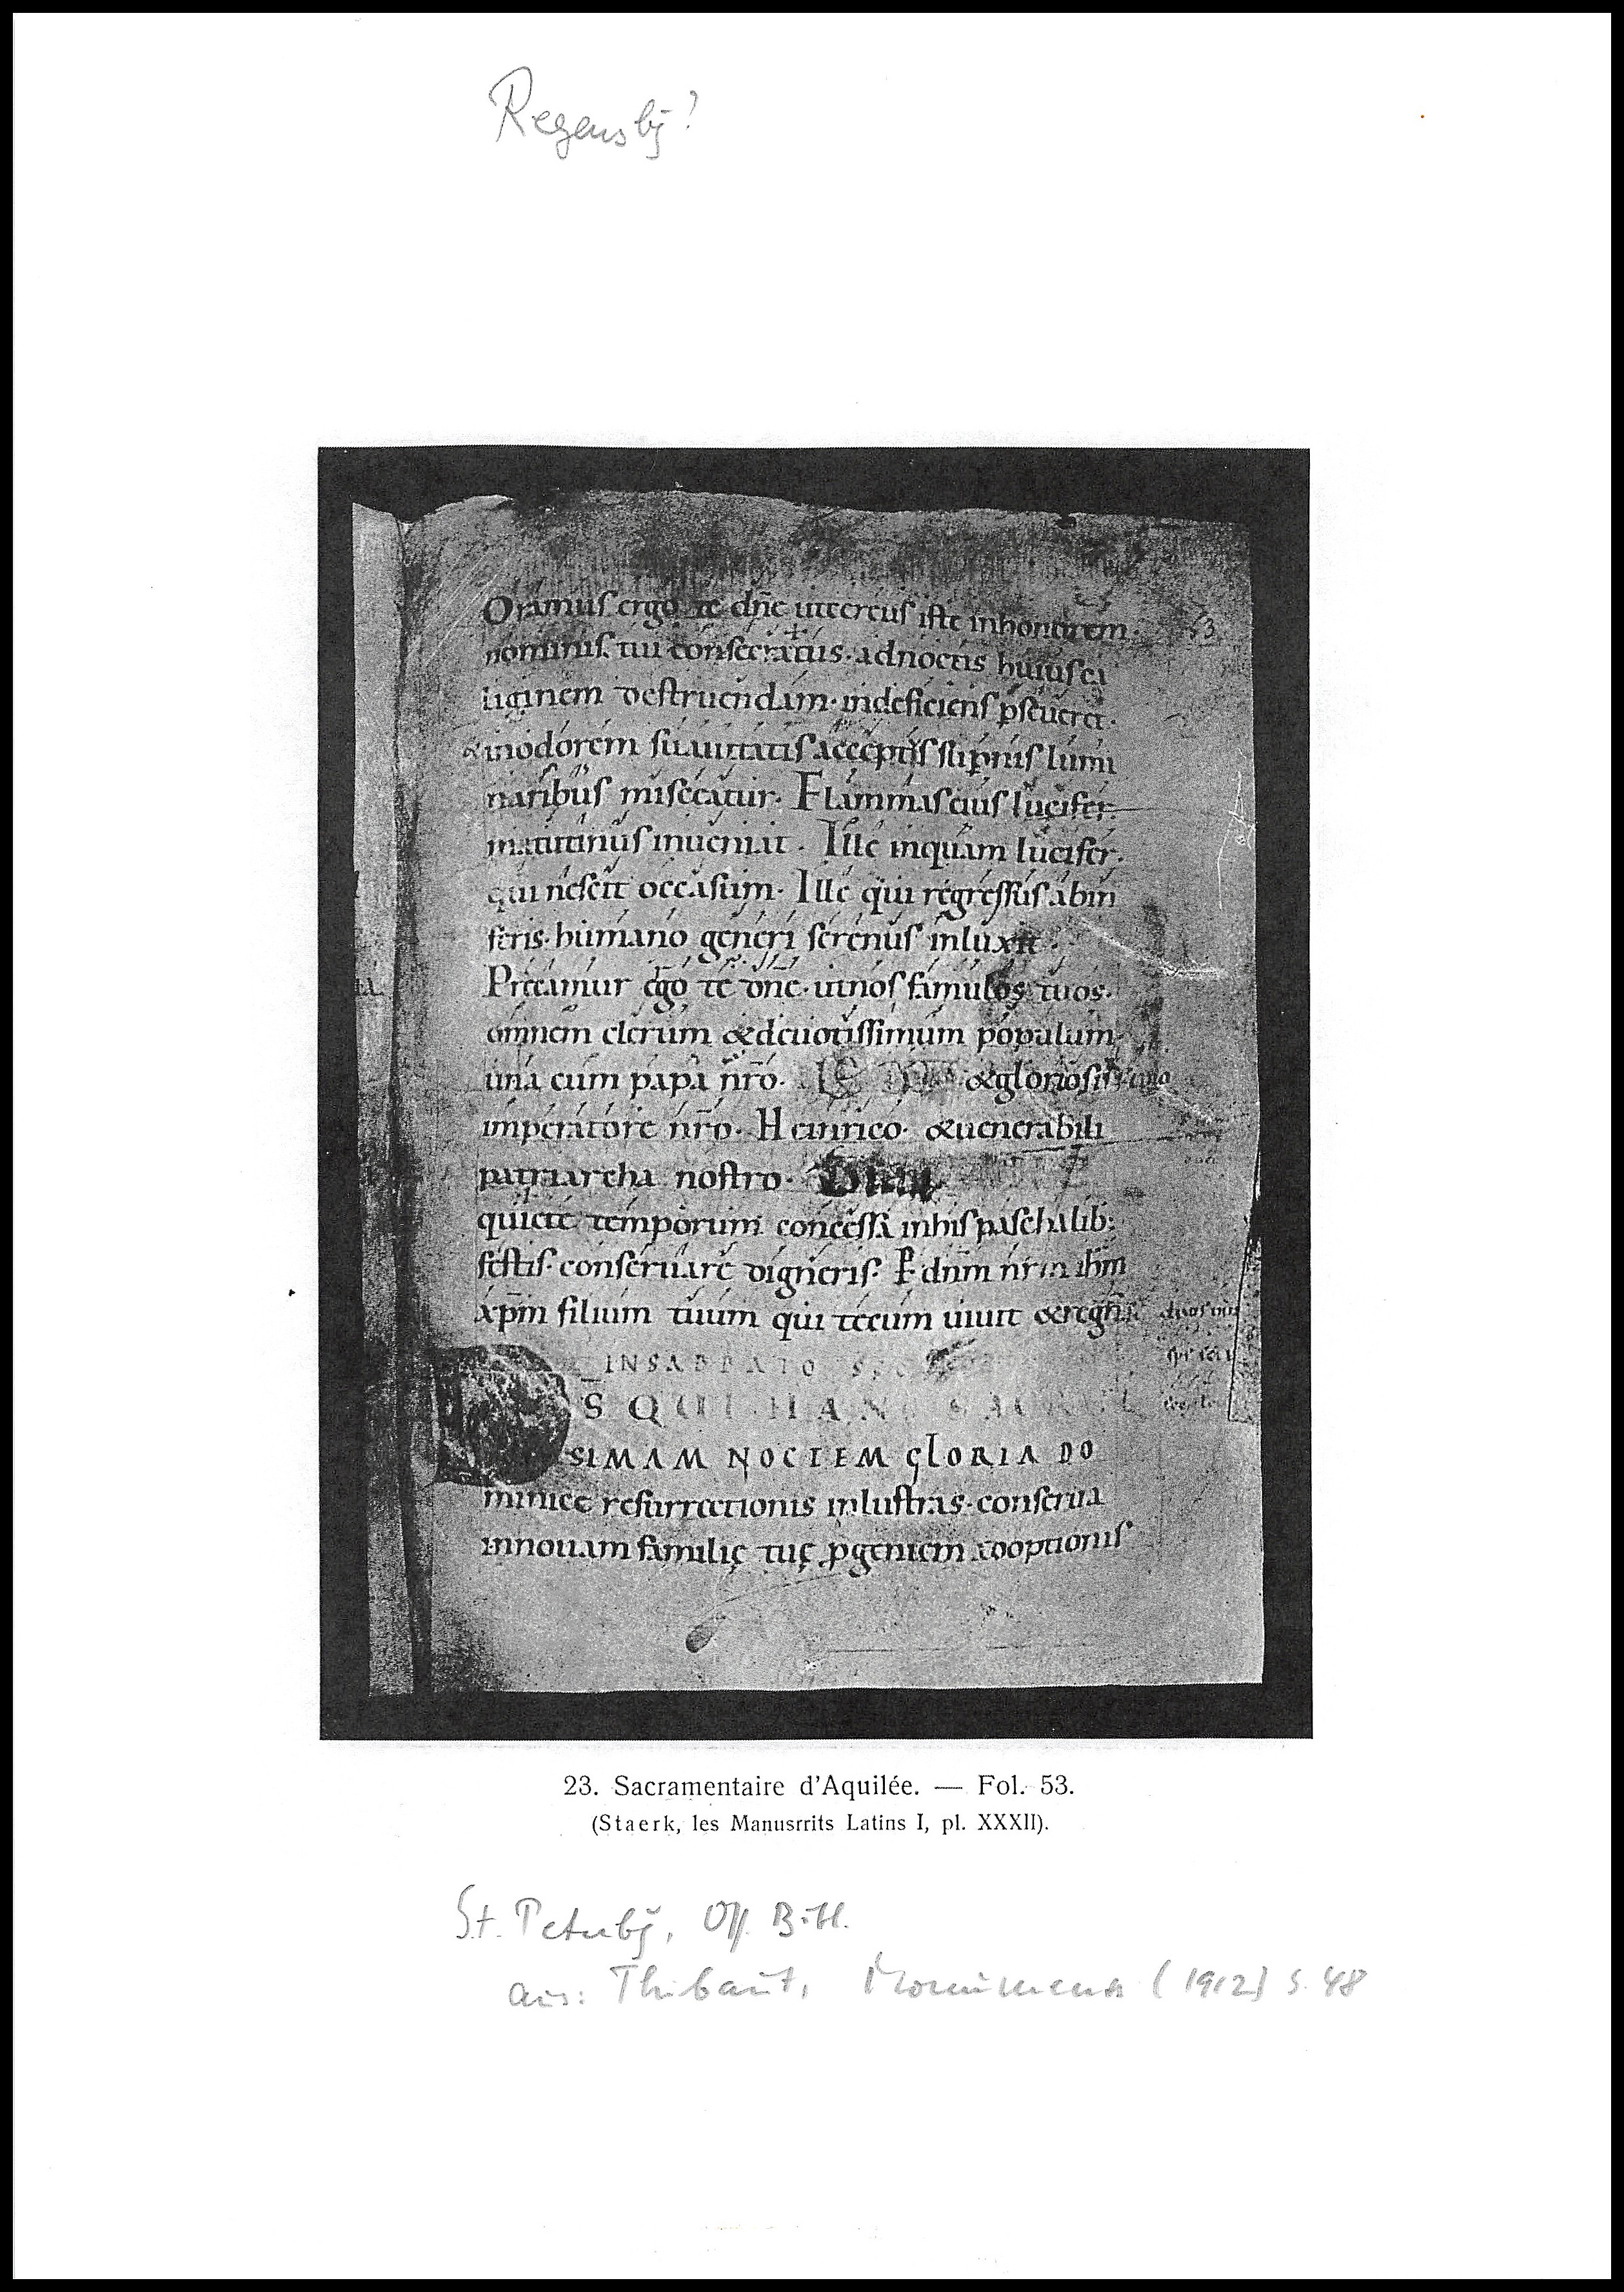 Regensbg?
Oramus ergo te dn̄e ut cereus iste inhonorem·
nominis tui consecratus· adnoctis huius ca
liginem destruendam· indeficiens p̱seueret·
&inodorem suauitatis acceptus supernis lumi
naribus misceatur· Flammas eius lucifer·
matutinus inueniat· Ille inquam lucifer·
qui nescit occasum· Ille qui regressus abin
feris· humano generi serenus inluxit·
Precamur ergo te dne· utnos famulos tuos·
omnem clerum &deuotissimum populum
una cum papa nr̄o· &gloriosissimo
imperatore nr̄o· Heinrico· &uenerabili
patriarcha nostro·
quiete temporum concessa inhis paschalib;
festis· conseruare digneris· P̱ dnm̄ nrm ihm̄
xp̄m filium tuum qui tecum uiuit &regn̄
INSABBATO
S QUI HANC SACRATIS
SIMAM NOCTEM GLORIA DO
minice resurrectionis inlustras· conserua
innouam familię tuę p̱geniem adoptionis
53
23. Sacramentaire d'Aquilée. — Fol. 53.
(Staerk, les Manusrrits Latins I, pl. XXXII).
St. Petersbg, Öff. Bibl.
aus: Thibaut, Monumens (1912) S. 48